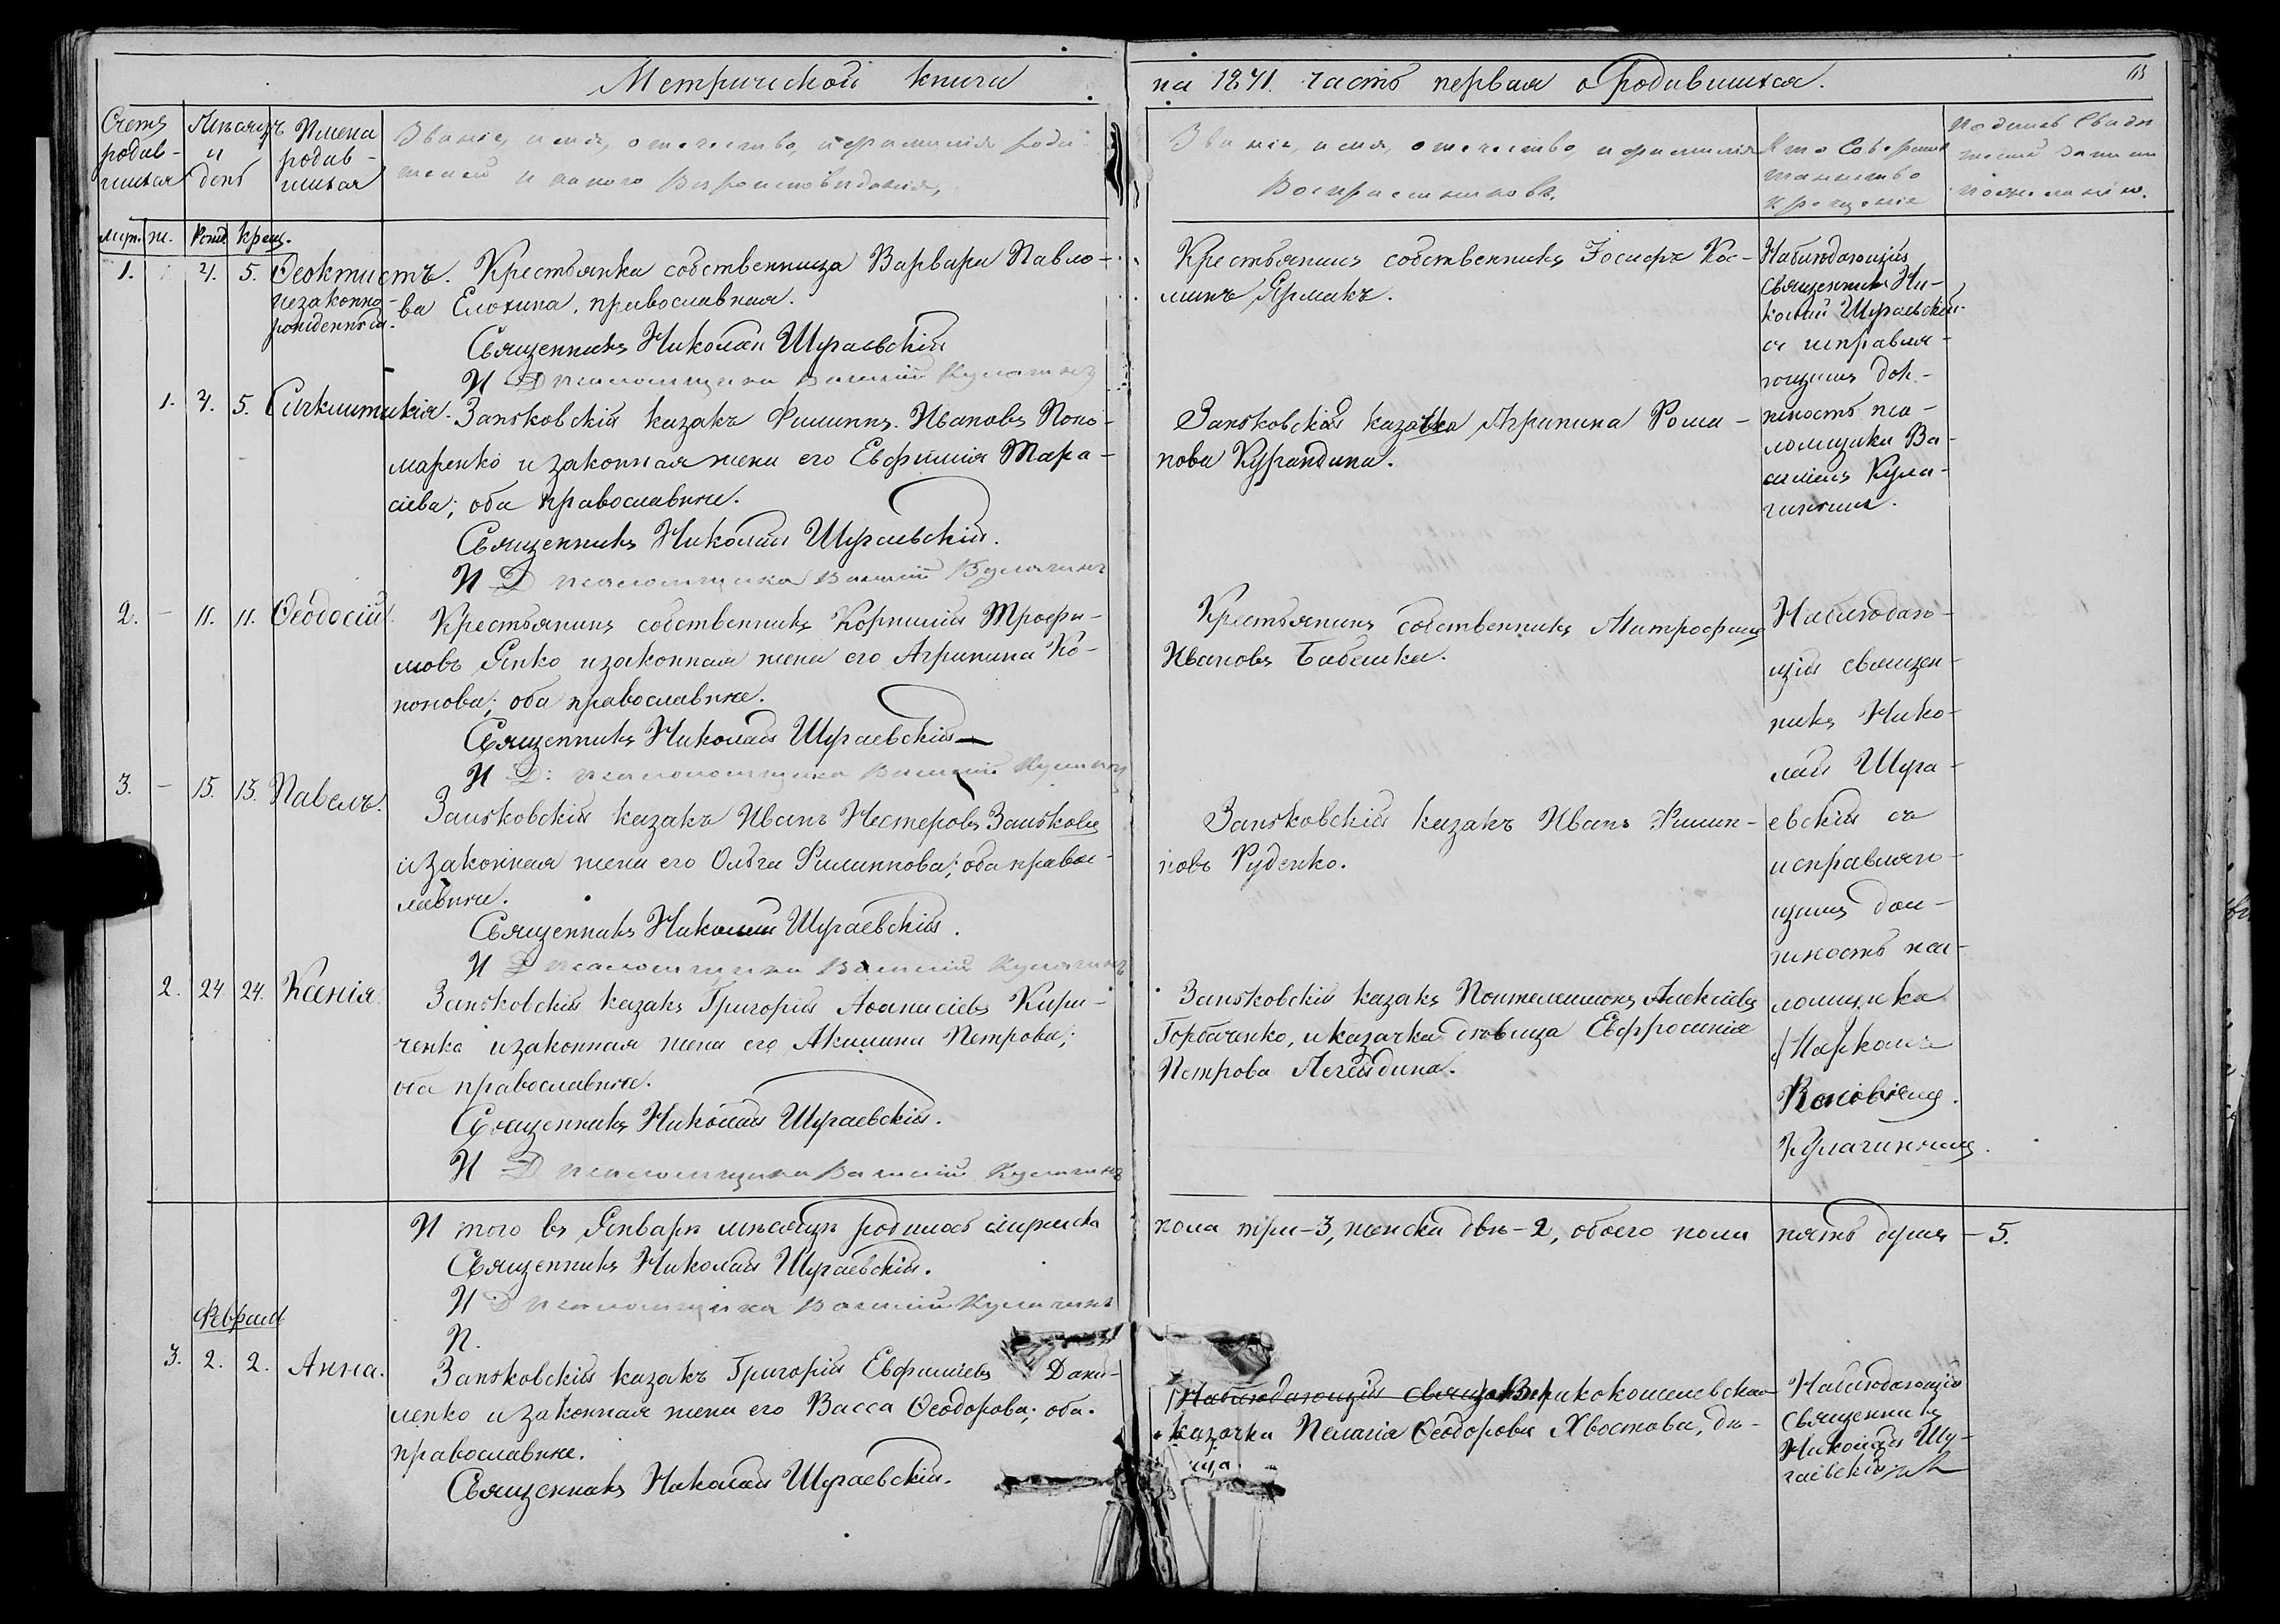 Метрической книги
на 1871. часть первая о Родившихся.
Счетъ родив-шихся
Мѣсяцъ и день
Имена родив-шихся
Званіе, имя, отчество, и фамилія роди-
телей и какого Вѣроисповѣданія,
Званіе, имя, отчество, и фамилія
Воспріемниковъ.
Кто Соверши
таинство
крещенія
муж. ж. Рожд Крещ.
1. 4. 5. Ѳеоктистъ.
незаконно-
рожденный.
Крестьянка собственница Варвара Павло-
ва Елохина, православная.
Священникъ Николай Шугаевскій
И Д псаломщика Василій Кулагинъ
Крестьянинъ собственникъ Іосифъ Кос-
минъ Ярмакъ.
Наблюдающій
Священникъ Ни-
колай Шугаевскій
съ исправля-
ющимъ дол-
жность пса-
ломщика Ва-
силіемъ Кула-
гинымъ.
1. 4. 5. Сигклитикія.
Запсковскій казакъ Филиппъ Ивановъ Поно-
маренко и законная жена его Евфимія Тара-
сіева; оба православные.
Священникъ Николай Шугаевскій.
И Д псаломщика Василій Кулагинъ
Запсковская казачка Агрипина Рома-
нова Курандина.
2. - 11. 11. Ѳеодосій.
Крестьянинъ собственникъ Корнилій Трофи-
мовъ Япко и законная жена его Агрипина Ко-
нонова; оба православные.
Священникъ Николай Шугаевскій
И Д: псаломщика Василій Кулагинъ
Крестьянинъ собственникъ Митрофанъ
Ивановъ Бабешка.
Наблюдаю-
щій священ-
никъ Нико-
лай Шуга-
евскій съ
исправляю-
щимъ дол-
жность пса-
ломщика
Кулагинымъ.
3. - 15. 15. Павелъ.
Запсковскій казакъ Иванъ Нестеровъ
и законная жена его Ольга Филиппова; оба правос-
лавные.
Священникъ Николай Шугаевскій.
И Д псаломщика Василій Кулагинъ
Запсковскій казакъ Иванъ Филип-
повъ Руденко.
2. 24 24. Ксенія.
Запсковскій казакъ Григорій Аѳанасіевъ Кири-
ченко и законная жена его Акилина Петрова;
оба православные.
Священникъ Николай Шугаевскій.
И Д псаломщика Василій Кулагинъ
Запсковскій казакъ Пантелеимонъ Алексіевъ
Горбаченко, и казачка дѣвица Евфросинія
Петрова Легейдина.
И того въ Январѣ мѣсяцѣ родилось мужска
пола три-3, женска двѣ-2, обоего пола пять душъ - 5.
Священникъ Николай Шугаевскій.
И Д псаломщика Василій Кулагинъ
П.
Февраль
3. 2. 2. Анна.
Запсковскій казакъ Григорій Евфиміевъ Дани-
ленко и законная жена его Васса Ѳеодорова; оба
православные.
Священникъ Николай Шугаевскій.
казачка Пелагія Ѳеодорова Хвостова, дѣ-
ица.
Наблюдающій
Священникъ
Николай Шу-
гаевскій